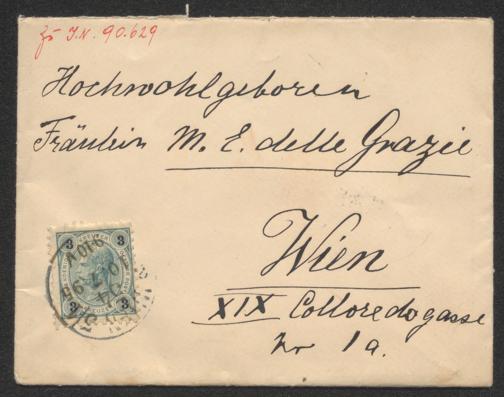 zu I.N. 90.629
Hochwohlgeboren
Fräulein M. E. delle Grazie
Wien
XIX Colloredogasse
Nr 1a.
3 3
3 3
WIEN